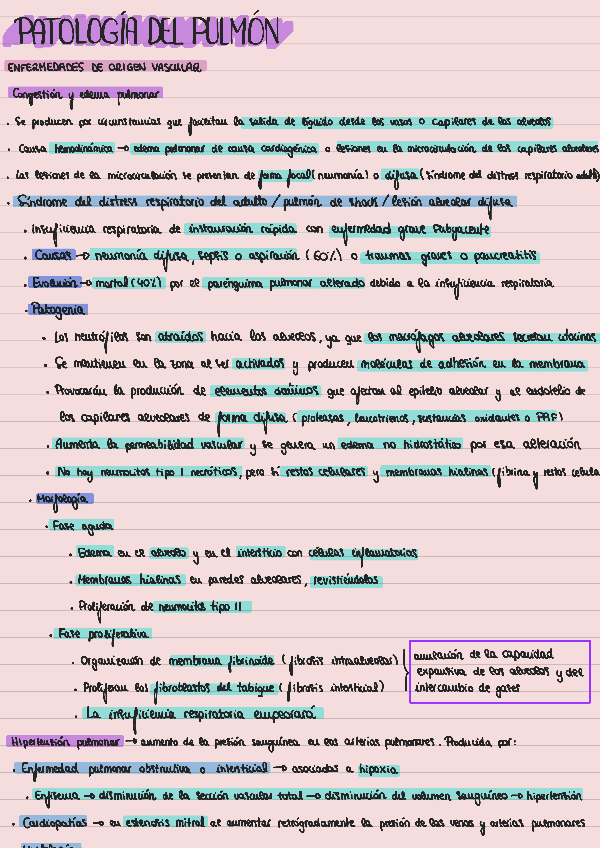 PATOLOGÍA DEL PULMÓN
ENFERMEDADES DE ORIGEN VASCULAR
Congestión y edema pulmonar
· Se producen por circunstancias que favorecen la salida de líquido desde los vasos o capilares de los alveolos
· Causa hemodinámica → edema pulmonar de causa cardiogénica o lesiones en la microcirculación de los capilares alveolares
· Las lesiones de la microcirculación se presentan de forma focal (neumonía) o difusa (síndrome del distress respiratorio adulto)
· Síndrome del distress respiratorio del adulto / pulmón de shock / lesión alveolar difusa
· Insuficiencia respiratoria de instauración rápida con enfermedad grave subyacente
· Causas → neumonía difusa, sepsis o aspiración (60%) o traumas graves o pancreatitis
· Evolución → mortal (40%) por el parénquima pulmonar alterado debido a la insuficiencia respiratoria
· Patogenia
· Los neutrófilos son atraídos hacia los alveolos, ya que los macrófagos alveolares secretan citocinas
· Se mantienen en la zona al ser activados y producen moléculas de adhesión en la membrana
· Provocarán la producción de elementos dañinos que afectan al epitelio alveolar y al endotelio de
los capilares alveolares de forma difusa (proteasas, leucotrienos, sustancias oxidantes o PAF)
· Aumenta la permeabilidad vascular y se genera un edema no hidrostático por esa alteración
· No hay neumocitos tipo I necróticos, pero sí restos celulares y membranas hialinas (fibrina y restos celula
· Morfología
· Fase aguda
· Edema en el alveolo y en el intersticio con células inflamatorias
· Membranas hialinas en paredes alveolares, revistiéndolas
· Proliferación de neumocitos tipo II
· Fase proliferativa
· Organización de membrana fibrinoide (fibrosis intraalveolar)
· Proliferan los fibroblastos del tabique (fibrosis intersticial)
anulación de la capacidad
expansiva de los alveolos y del
intercambio de gases
· La insuficiencia respiratoria empeorará
Hipertensión pulmonar → aumento de la presión sanguínea en las arterias pulmonares. Producida por:
· Enfermedad pulmonar obstructiva o intersticial → asociadas a hipoxia
· Enfisema → disminución de la sección vascular total → disminución del volumen sanguíneo → hipertensión
· Cardiopatías → en estenosis mitral al aumentar retrógradamente la presión de las venas y arterias pulmonares